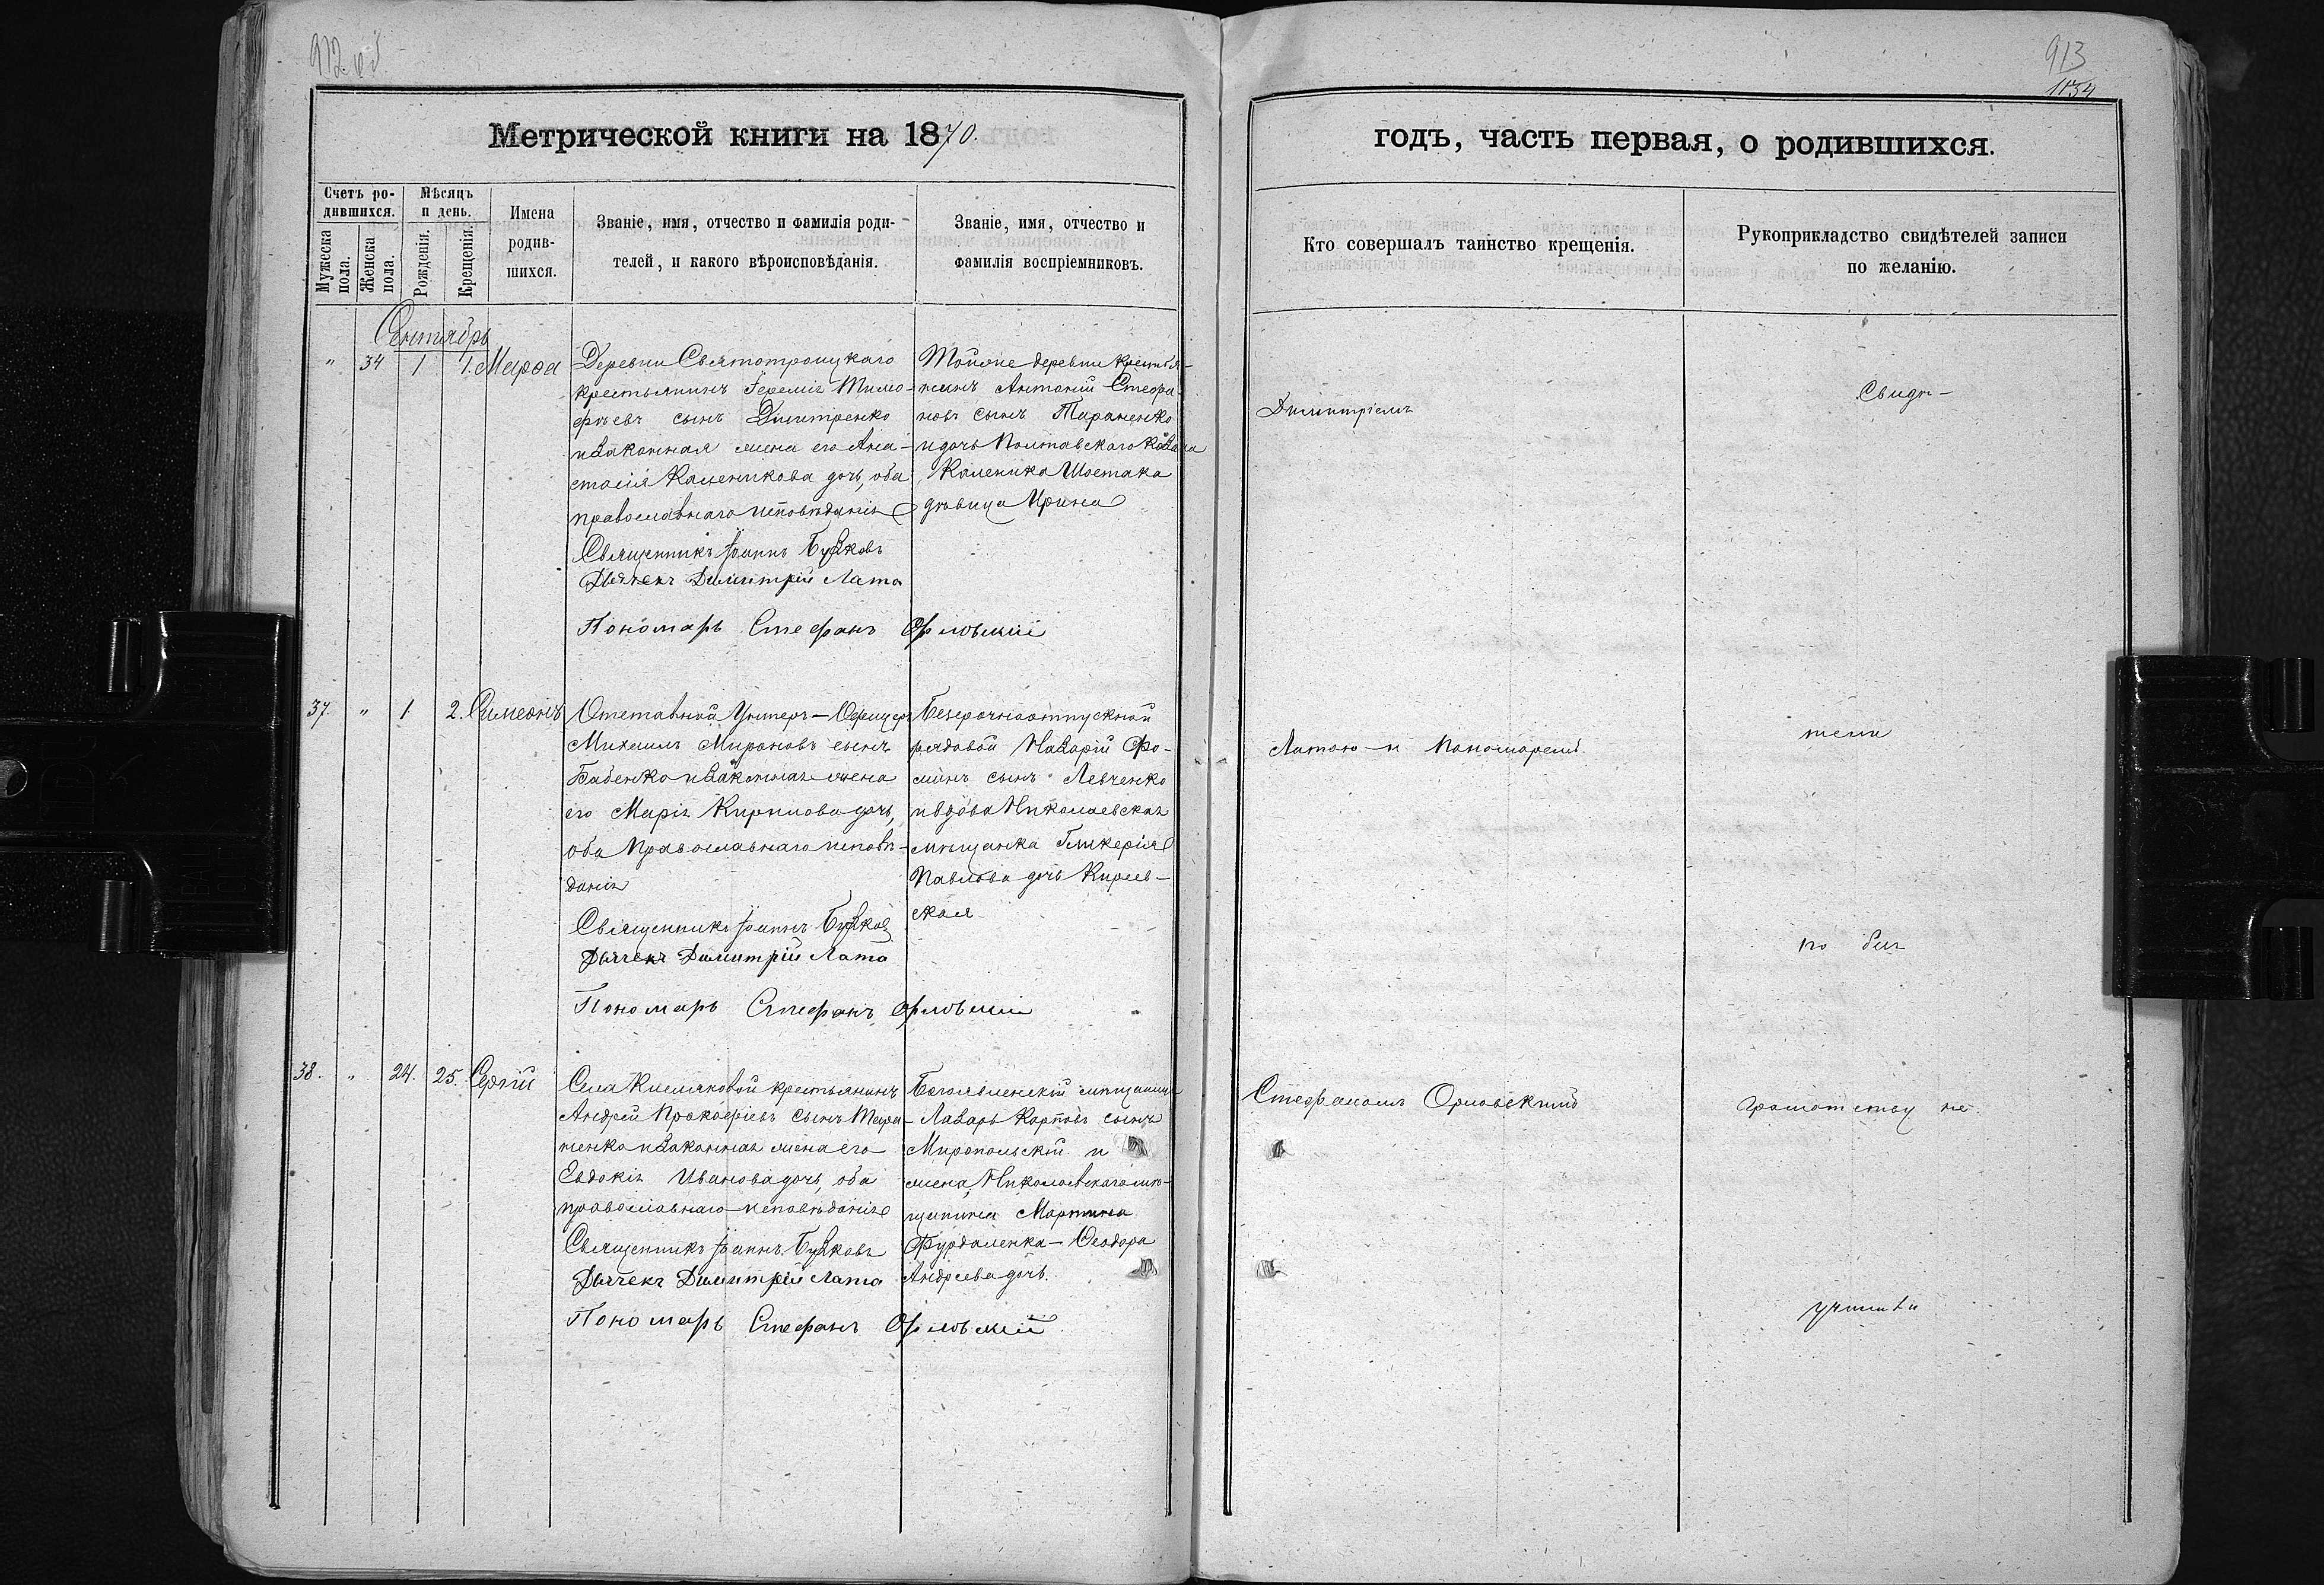 912 об
913
1154
Метрической книги на 1870.
годъ, часть первая, о родившихся.
Счетъ ро-
дившихся.
Мѣсяцъ
и день.
Мужеска
пола.
Женска
пола.
Рожденія.
Крещенія.
Имена
родив-
шихся.
Званіе, имя, отчество и фамилія роди-
телей, и какого вѣроисповѣданія.
Званіе, имя, отчество и
фамилія воспріемниковъ.
Кто совершалъ таинство крещенія.
Рукоприкладство свидѣтелей записи
по желанію.
Сентябрь
" 34 1 1. Марѳа
Деревни Святотроицкаго
крестьянинъ Іеремія Тимо-
фѣевъ сынъ Димитренко
и законная жена его Ана-
стасія Каленикова дочь, оба
православнаго исповѣданія
Священникъ Іоаннъ Бузковъ
Дьячекъ Димитрій Лата
Пономарь Стефанъ Орловскій
Тойоже деревни крестья-
нинъ Антоній Стефа-
новъ сынъ Тараненко
и дочь Полтавскаго козака
Каленика Шостака
дѣвица Ирина
Димитріемъ
Свидѣ-
37. " 1 2. Симеонъ
Отставной Унтеръ-Офицеръ
Михаилъ Мироновъ сынъ
Бабенко и законная жена
его Марія Кирилова дочь,
оба Православнаго исповѣ-
данія
Священникъ Іоаннъ Бузковъ
Дьячекъ Димитрій Лата
Пономарь Стефанъ Орловскій
Безсрочноотпускной
рядовой Назарій Фо-
минъ сынъ Левченко
и вдова Николаевская
мѣщанка Гликерія
Павлова дочь Киріев-
ская
Латою и Пономаремъ
тели
по бих
38. " 24. 25. Сергій
Села Кисляковой крестьянинъ
Андрей Прокофіевъ сынъ Тара-
ненко и законная жена его
Евдокія Иванова дочь, оба
православнаго исповѣданія
Священникъ Іоаннъ Бузковъ
Дьячекъ Димитрій Лата
Пономарь Стефанъ Орловскій
Богоявленскій мѣщанинъ
Лазарь Карповъ сынъ
Миропольскій и
жена Николаевскаго мѣ-
щанина Мартина
Фурдаленка - Ѳеодора
Андреева дочь.
Стефаномъ Орловскимъ
грамотству не
учились